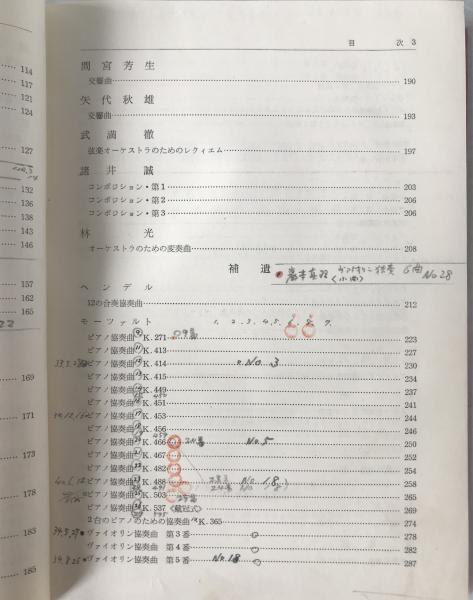 目 次 3
間宮芳生
交響曲 190
矢代秋雄
交響曲 193
武満徹
弦楽オーケストラのためのレクィエム 197
諸井誠
コンポジション・第1 203
コンポジション・第2 206
コンポジション・第3 206
林光
オーケストラのための変奏曲 208
補遺
No 28
ヘンデル
12の合奏協奏曲 212
モーツァルト
ピアノ協奏曲 K. 271 223
ピアノ協奏曲 K. 413 227
ピアノ協奏曲 K. 414 No. 3 230
ピアノ協奏曲 K. 415 234
ピアノ協奏曲 K. 449 237
ピアノ協奏曲 K. 451 241
ピアノ協奏曲 K. 453 244
ピアノ協奏曲 K. 456 246
ピアノ協奏曲 K. 466 No. 5 250
ピアノ協奏曲 K. 467 254
ピアノ協奏曲 K. 482 258
ピアノ協奏曲 K. 488 258
ピアノ協奏曲 K. 503 265
ピアノ協奏曲 K. 537 (戴冠式) 269
2台のピアノのための協奏曲 K. 365 274
ヴァイオリン協奏曲 第3番 278
ヴァイオリン協奏曲 第4番 282
ヴァイオリン協奏曲 第5番 No. 18 287
114
117
121
124
127
132
136
138
143
146
157
162
165
169
171
173
178
183
185